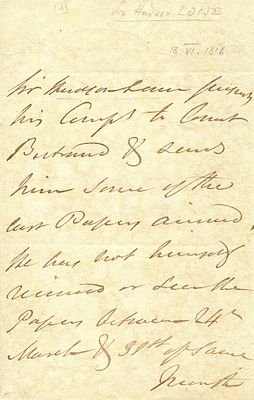 Sir Hudson LOWE
18. VI. 1816
Sir Hudson Lowe presents
his Compts to Count
Bertrand & sends
him some of the
last Papers arrived.
He has not himself
received or seen the
Papers between 24th
March & 30th of same
Month